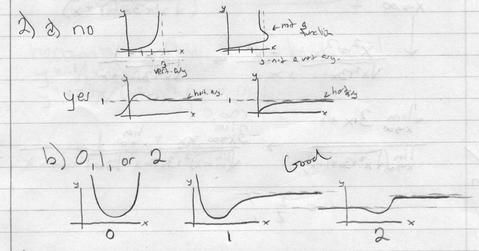 2) a) no
y
x
vert. asy
y
x
not a function
3 - not a vert asy.
yes
y
1
x
hori. asy.
y
1
x
hori asy
b) 0, 1, or 2
Good
y
x
0
y
x
1
y
x
2